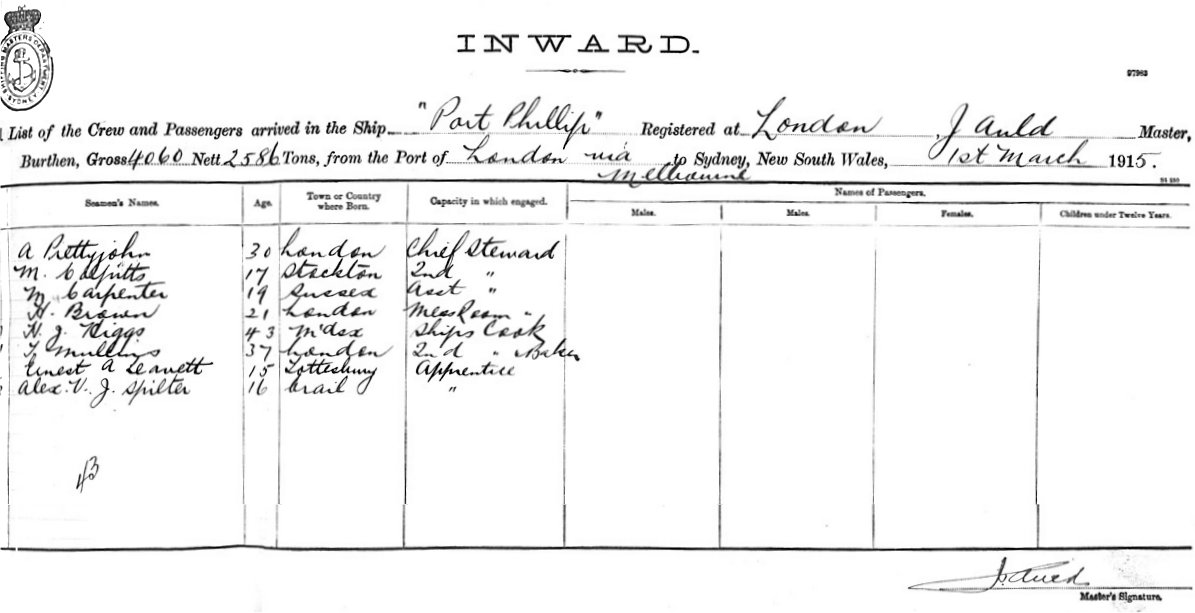 SHIPPING MASTERS DEPARTMENT SYDNEY
INWARD.
97963
List of the Crew and Passengers arrived in the Ship "Port Phillip" Registered at London J Auld Master,
Burthen, Gross 4060 Nett 2586 Tons, from the Port of London via Melbourne to Sydney, New South Wales, 1st March 1915.
Names of Passengers.
Seamen's Names. Age. Town or Country where Born. Capacity in which engaged. Males. Males. Females. Children under Twelve Years.
A Prettyjohn 30 London Chief Steward
M. 17 Stockton 2nd "
M Carpenter 19 Sussex Asst "
H. Brown 21 London Mess Room "
H. J. Higgs 43 M'dsx Ships Cook
T Mullins 37 London 2nd " Baker
Ernest A Leavett 15 Tottesbury Apprentice
Alex. V. J. Spilter 16 Crail "
43
J. Auld
Master's Signature.